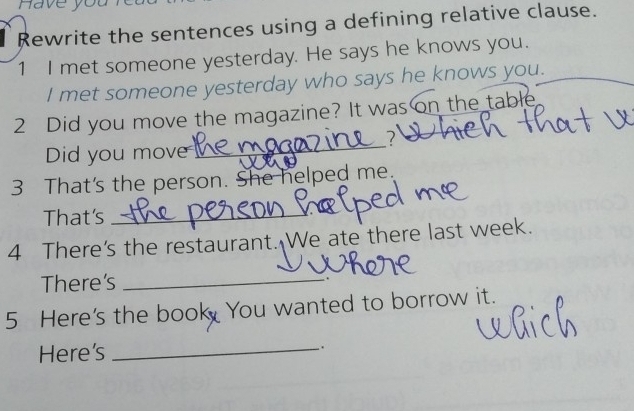 Have you read the
1 Rewrite the sentences using a defining relative clause.
1 I met someone yesterday. He says he knows you.
I met someone yesterday who says he knows you.
2 Did you move the magazine? It was on the table.
Did you move the magazine ? which that
who
3 That's the person. She helped me.
That's the person helped me
4 There's the restaurant. We ate there last week.
where
There's .
5 Here's the book. You wanted to borrow it.
which
Here's .